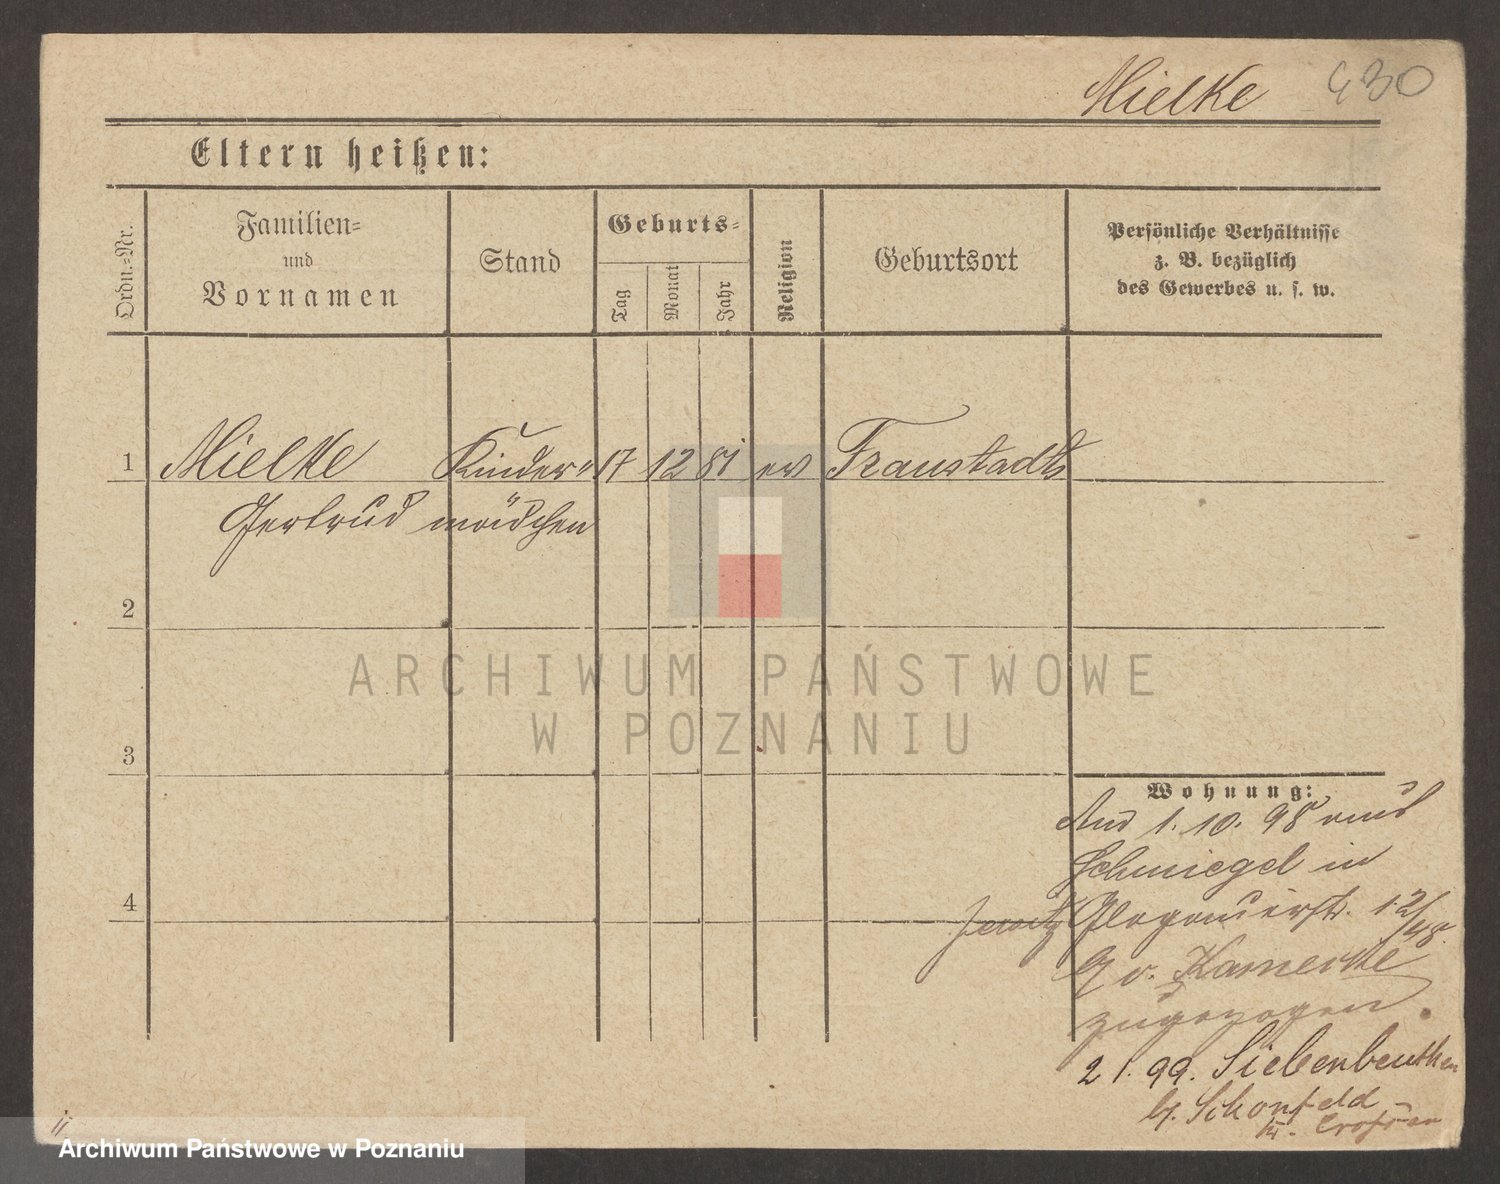 Mielke 430
Eltern heißen:
Ordn.-Nr.
Familien-
und
Vornamen
Stand
Geburts-
Tag
Monat
Jahr
Religion
Geburtsort
Persönliche Verhältnisse
z. B. bezüglich
des Gewerbes u. s. w.
1 Mielke Kinder- 17 12 81 ev Fraustadt
Gertrud mädchen
2
ARCHIWUM PAŃSTWOWE
W POZNANIU
3
Wohnung:
Am 1.10.98 aus
Schmiegel in
4 Jersitz Glogauerstr. 12/
v. Kamecke
zugezogen.
2 1. 99. Siebenbeuthen
b. Schönfeld
Kr. Crossen
Archiwum Państwowe w Poznaniu